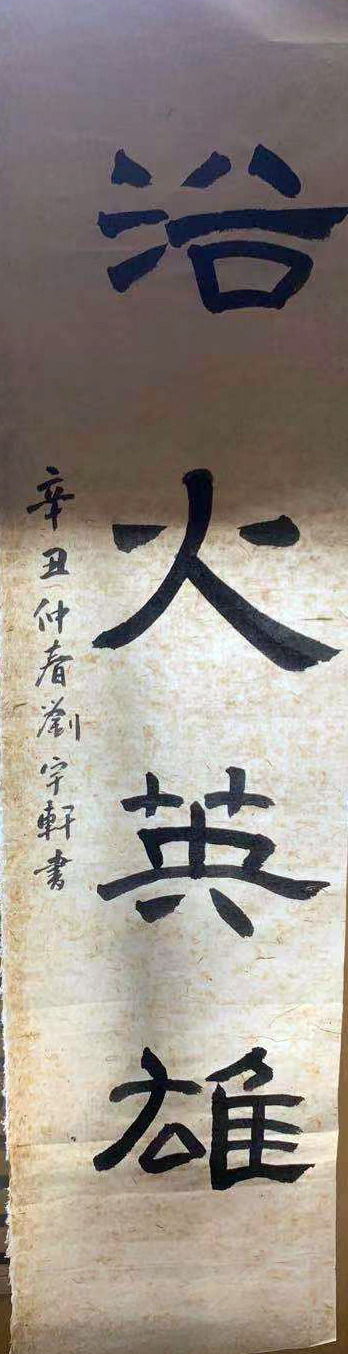 浴火英雄
辛丑仲春劉宇軒書